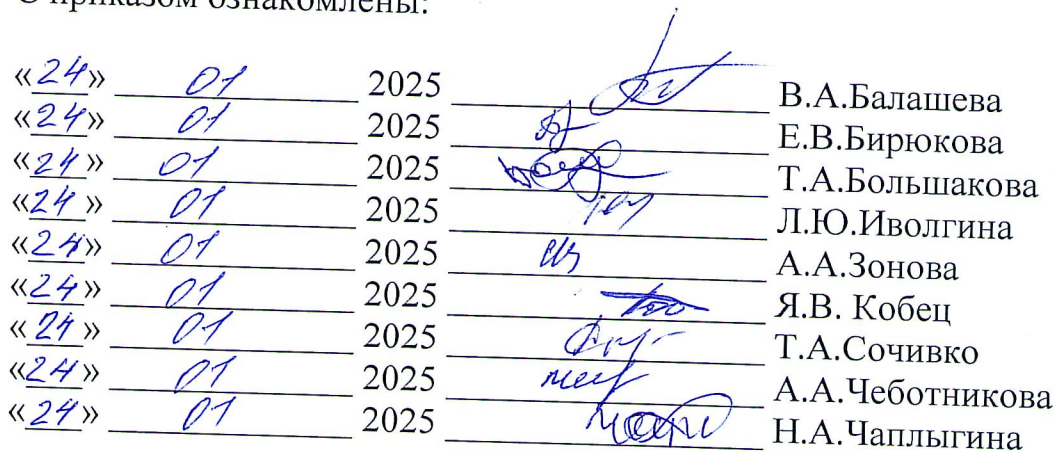 С приказом ознакомлены:
«24» 01 2025 В.А.Балашева
«24» 01 2025 Е.В.Бирюкова
«24» 01 2025 Т.А.Большакова
«24» 01 2025 Л.Ю.Иволгина
«24» 01 2025 А.А.Зонова
«24» 01 2025 Я.В. Кобец
«24» 01 2025 Т.А.Сочивко
«24» 01 2025 А.А.Чеботникова
«24» 01 2025 Н.А.Чаплыгина